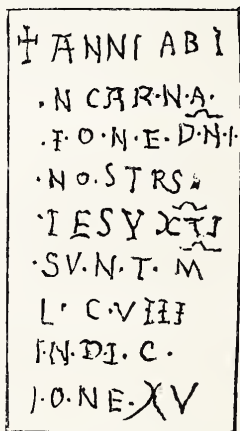 ☩ ANNI ABI
.N CAR·N·A·
·I·O·N·E·D·N·I·
·N O·S T RS
·I E S V XTI
·SV·N·T· M
L· C·VIII
I·N·DI·C·
I·O·NE·XV